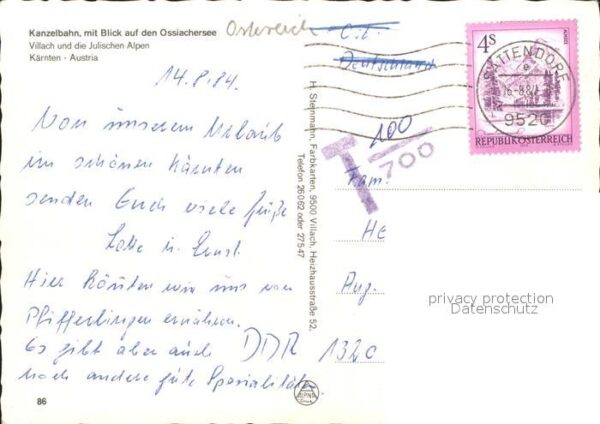 Kanzelbahn, mit Blick auf den Ossiachersee
Villach und die Julischen Alpen
Kärnten - Austria
Österreich
Deutschland
14.8.84.
Von unserem Urlaub
im schönen Kärnten
senden Euch viele Grüße
Lotte u. Ernst.
Hier könnten wir uns von
Pfifferlingen ernähren.
Es gibt aber auch
noch andere gute Spezialitäten.
86
H. Steinmann, Farbkarten, 9500 Villach, Heizhausstraße 52,
Telefon 26062 oder 27547
4S
SATTENDORF
9520
REPUBLIK ÖSTERREICH
T
100
700
Fam.
He
Aug.
DDR 1320
privacy protection
Datenschutz